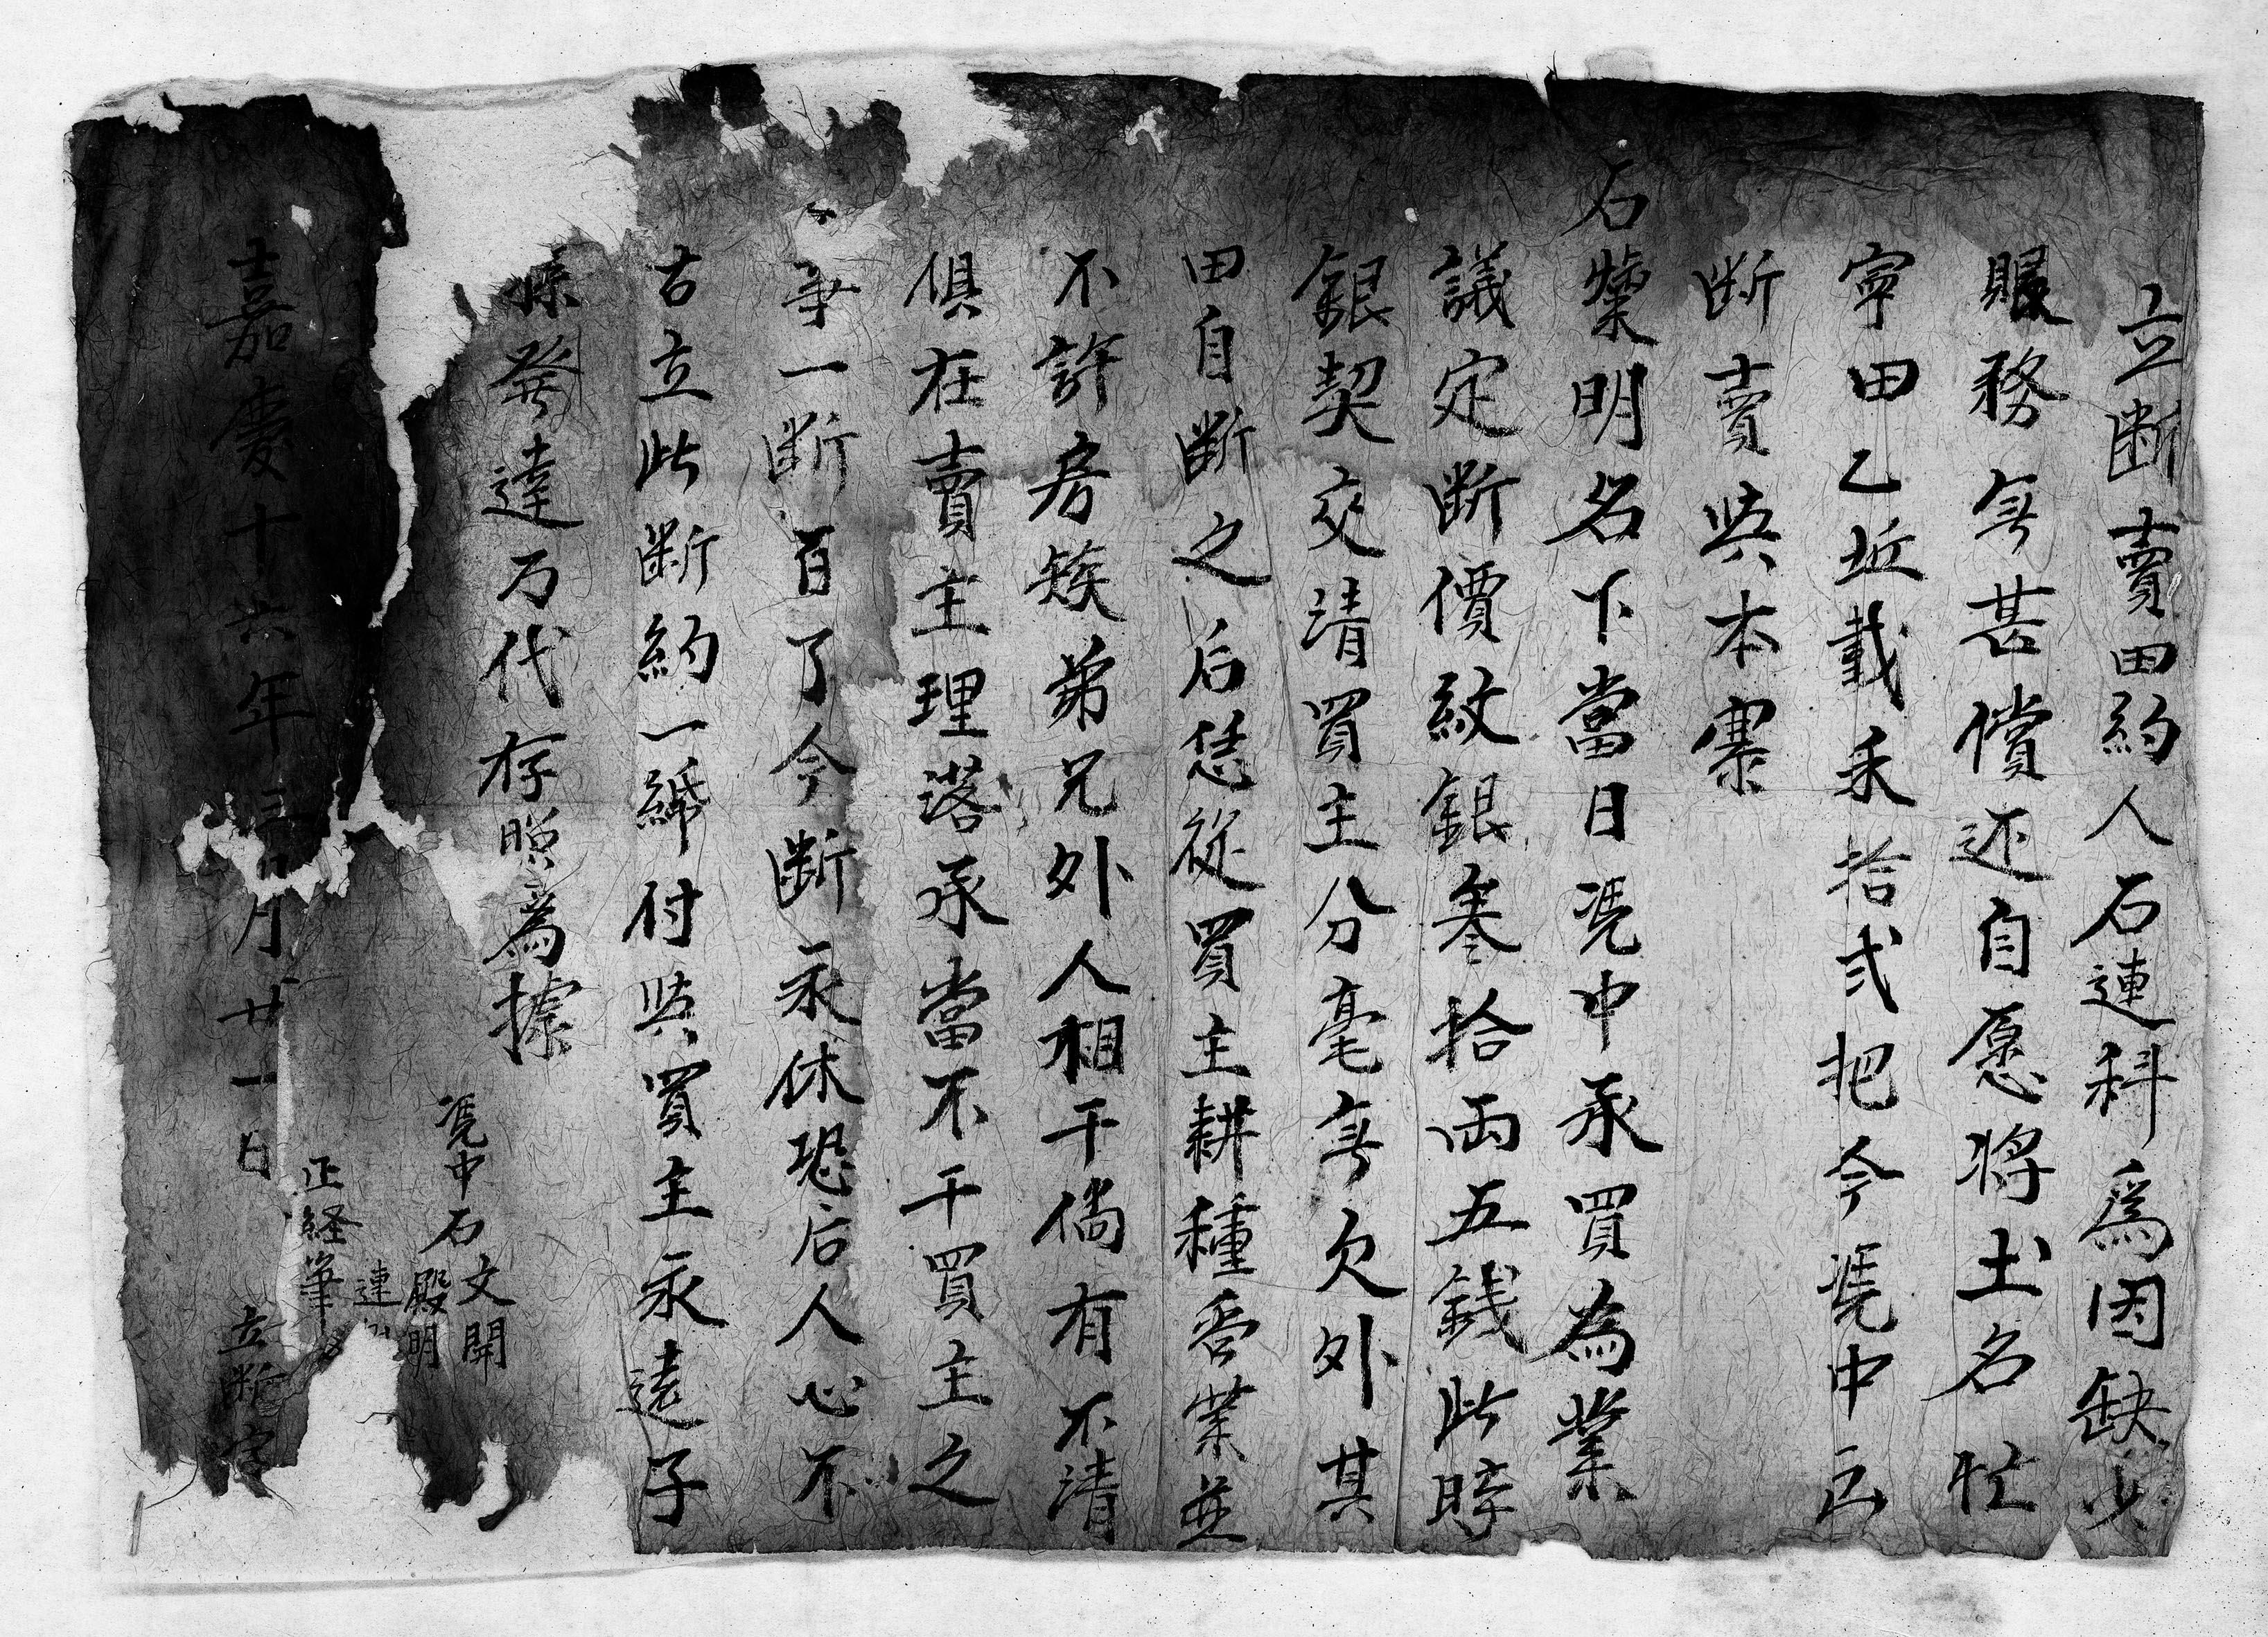 立断賣田約人石連科爲因缺少
賬務無甚償还自愿將土名忙
寜田乙坵載禾拾弍把今凴中
断賣與本寨
石榮明名下當日凴中承買為業
議定断價紋銀叁拾両五銭此時
銀契交清買主分毫無欠外其
田自断之后恁從買主耕種管業並
不許房簇弟兄外人相干倘有不清
俱在賣主理落承當不干買主之
事一断百了今断永休恐后人心不
古立此断約一紙付與買主永遠子
孫發達万代存照為據
凴中石
文開
殿明
連
正経筆
嘉慶十六年三月廿一日 立断字